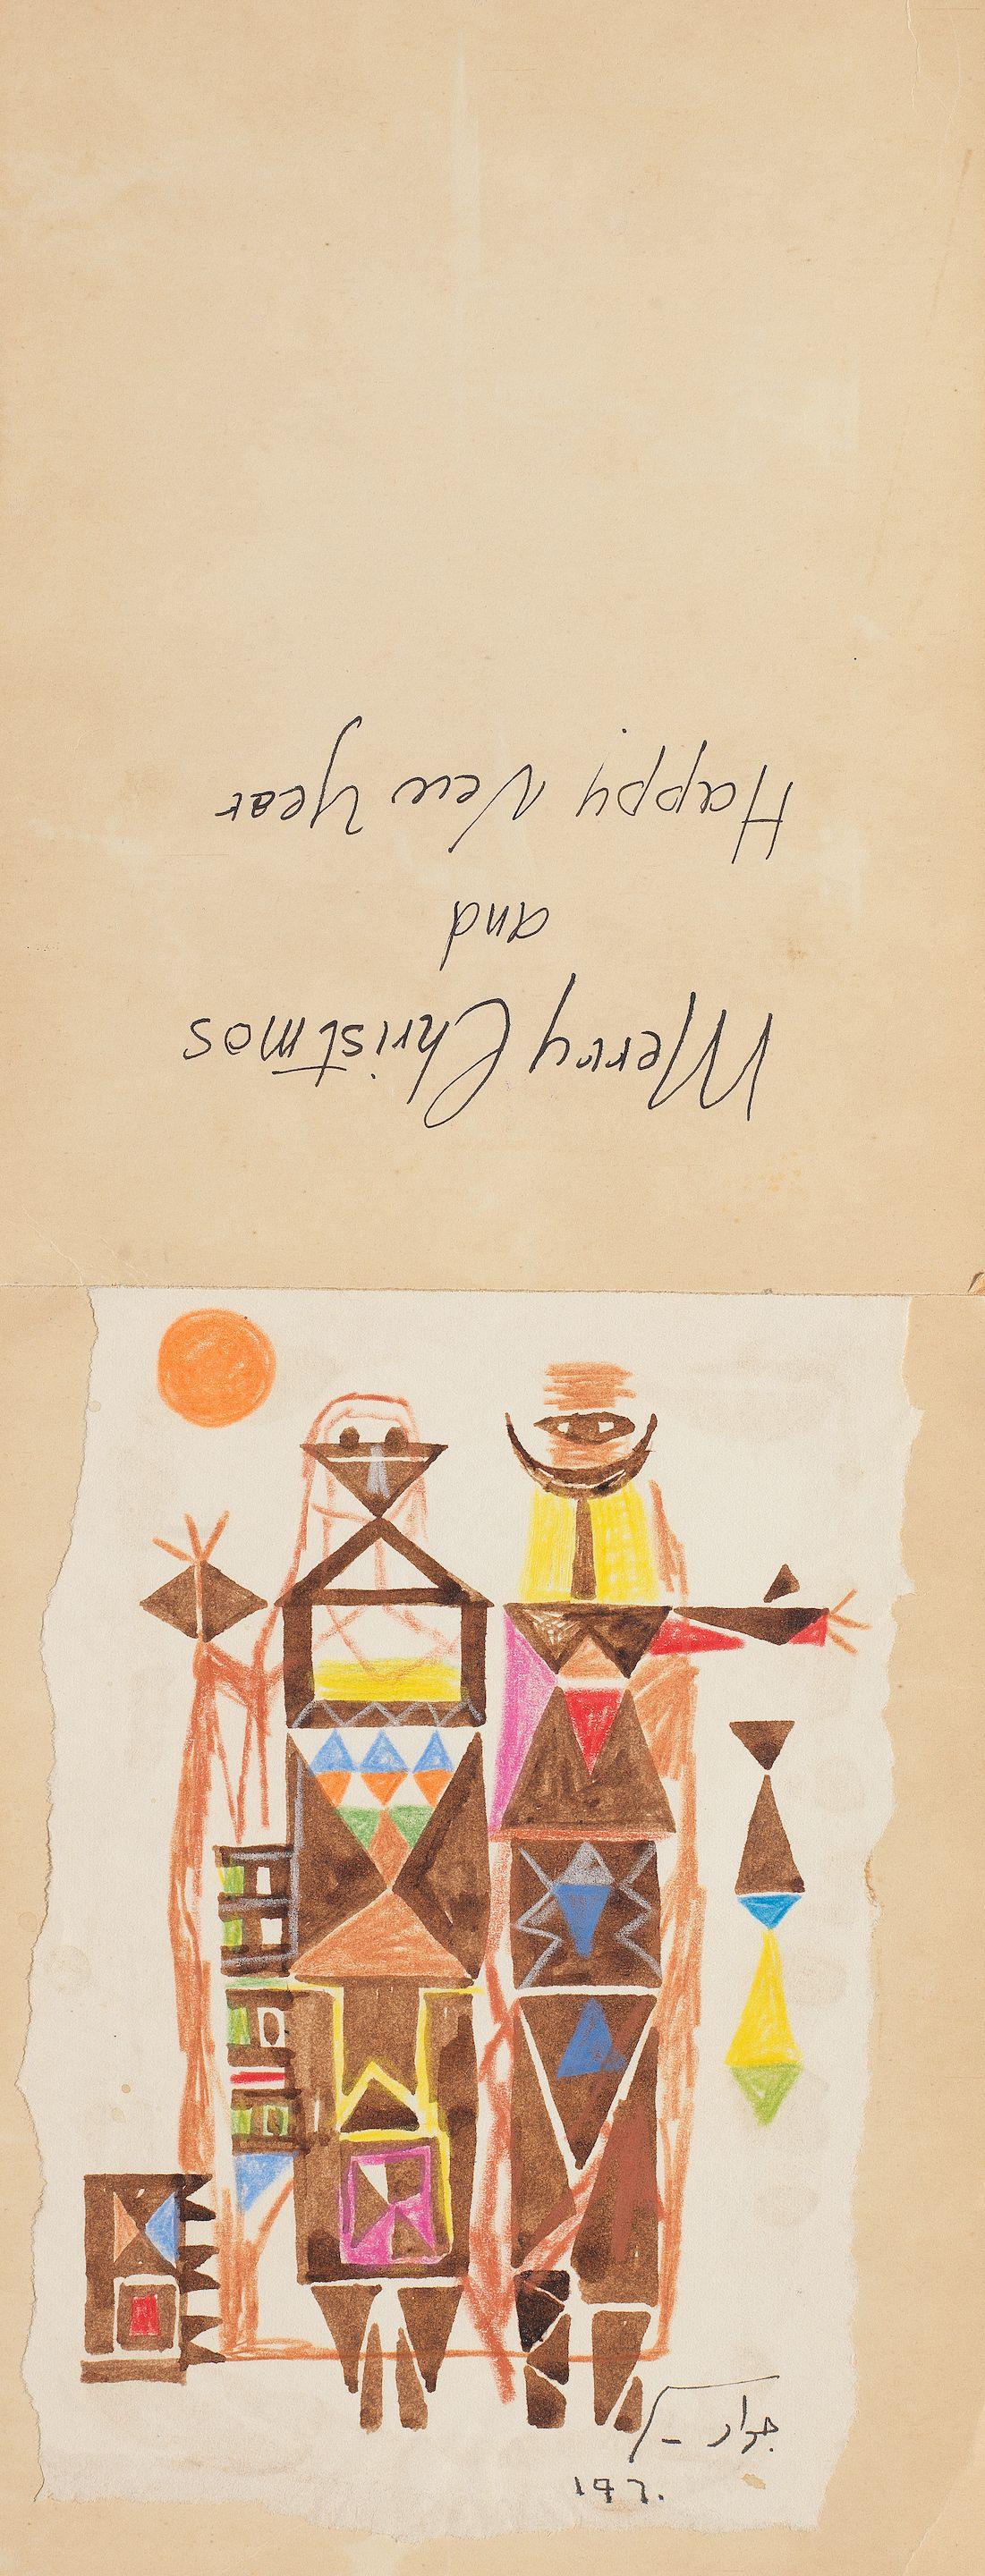 Merry Christmas
and
Happy New Year
جواد
١٩٦٠